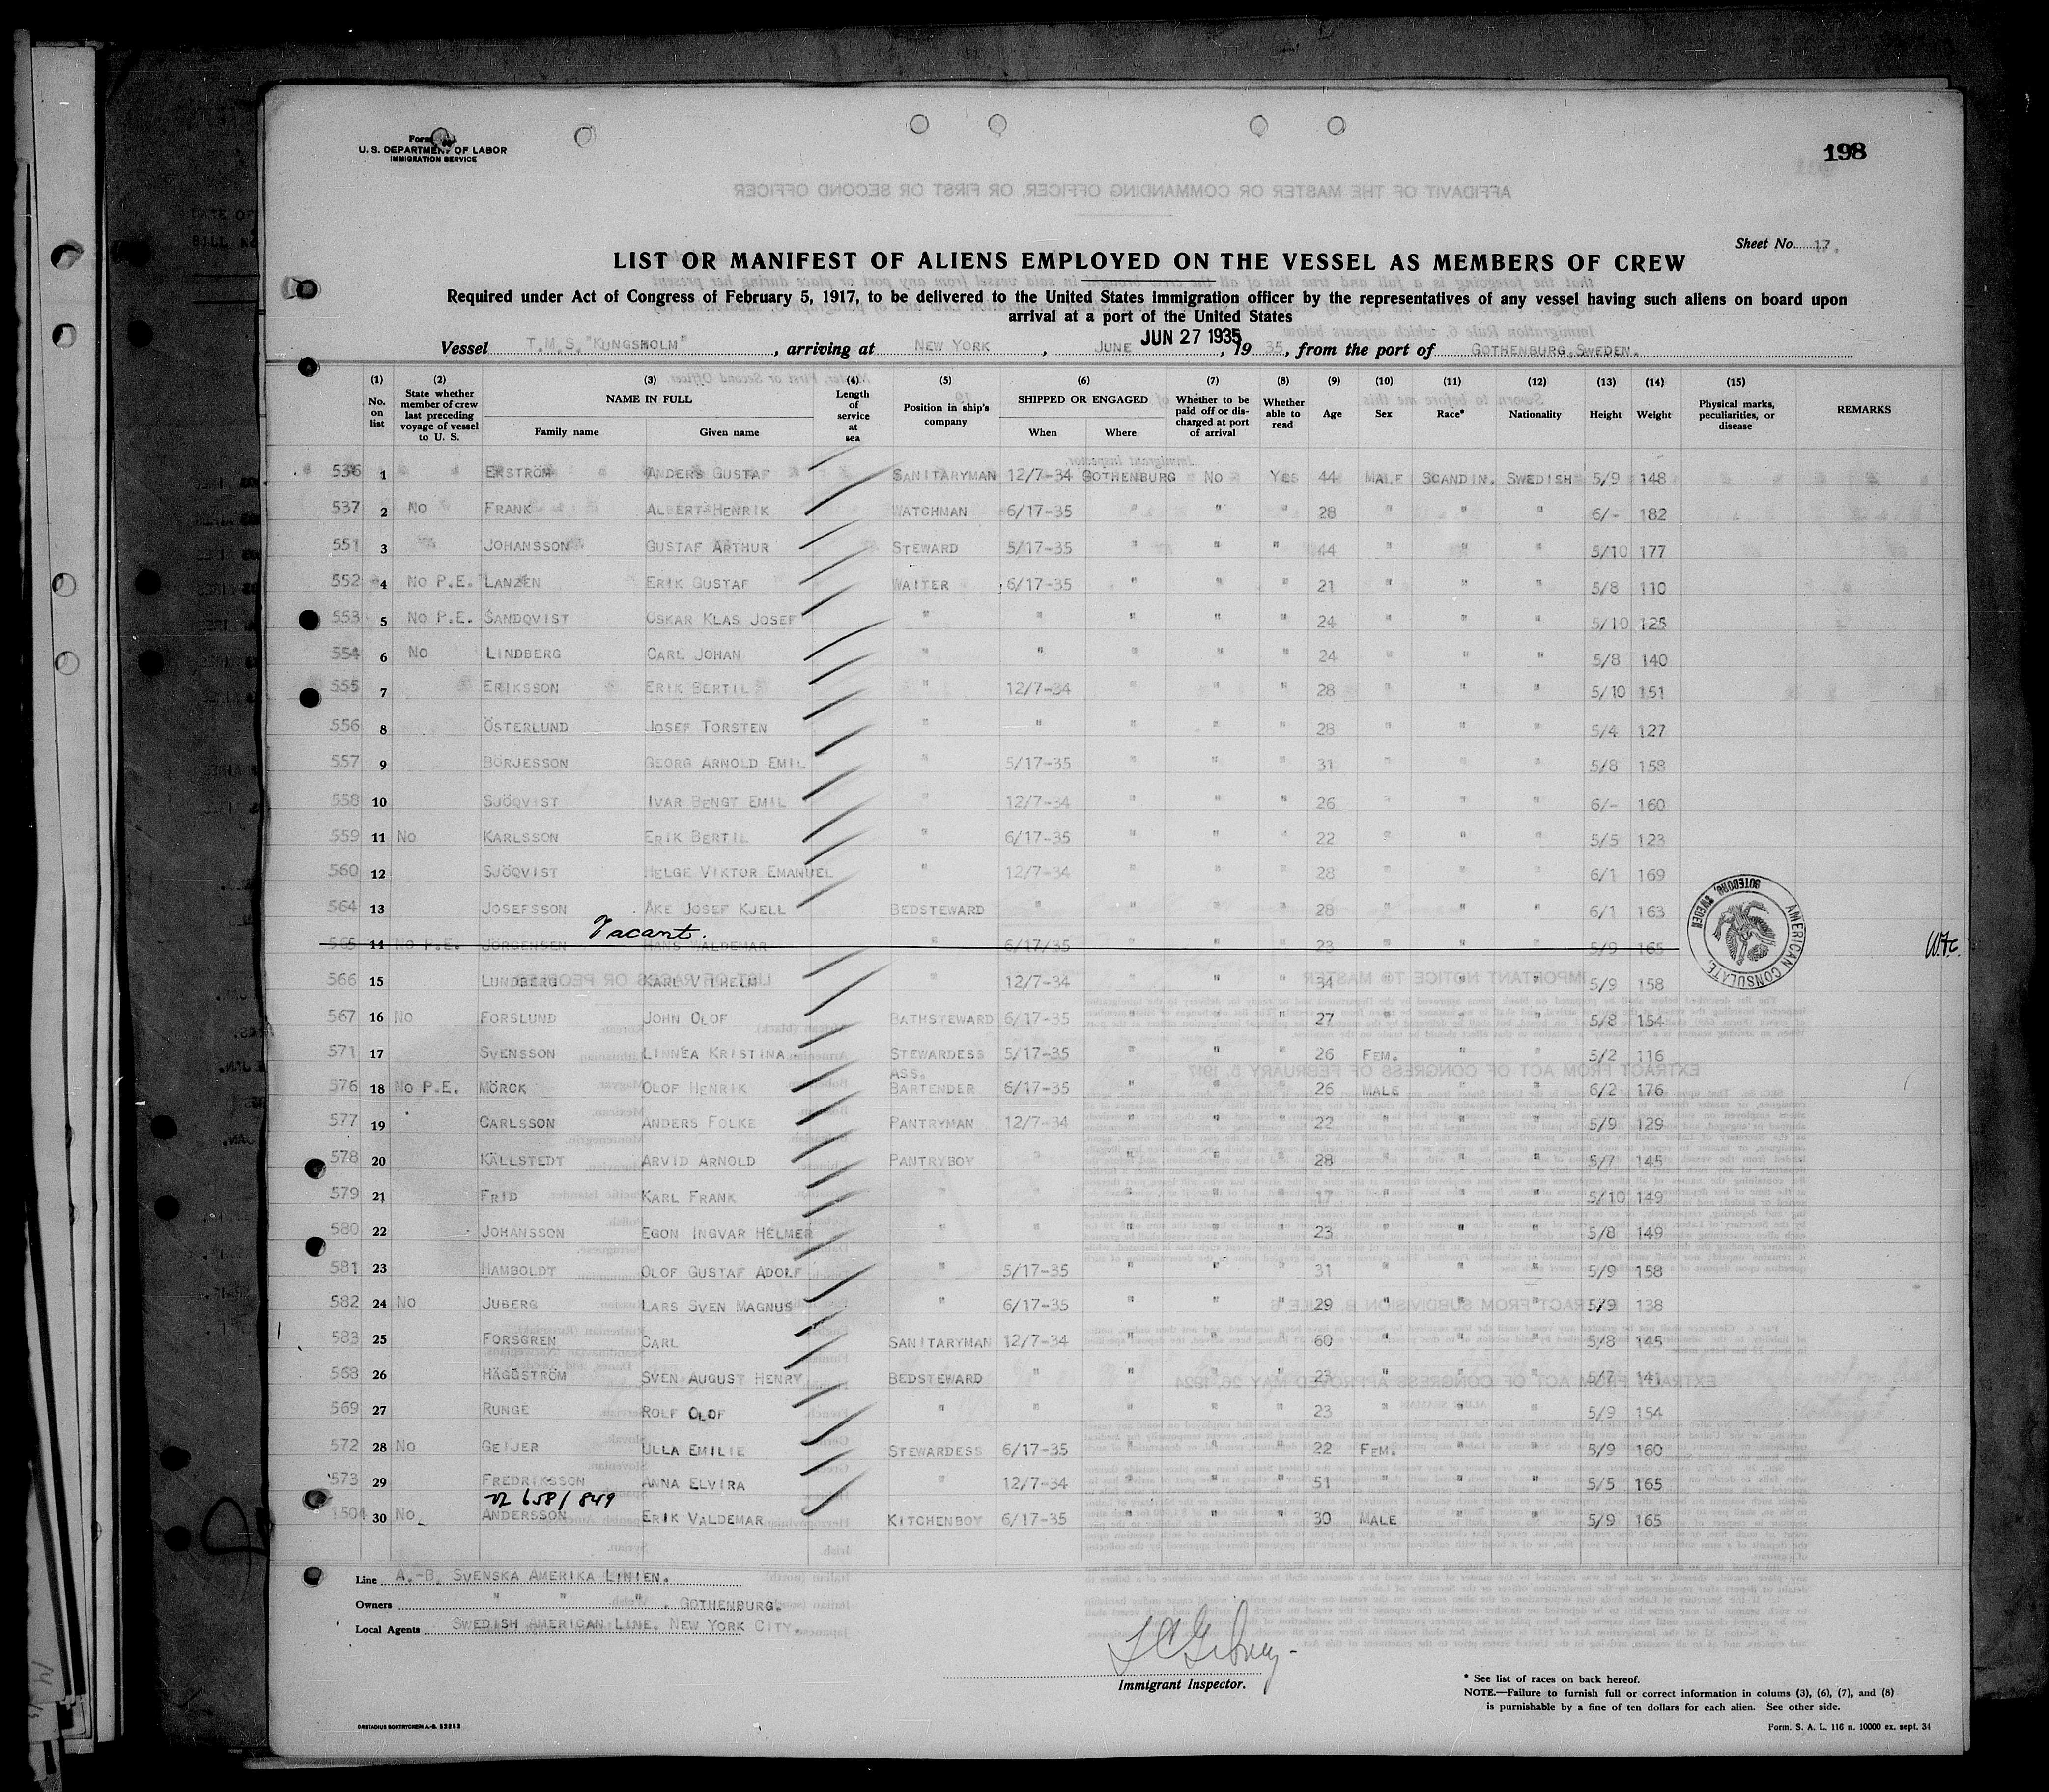 Form
U. S. DEPARTMENT OF LABOR
IMMIGRATION SERVICE
198
Sheet No. 17.
LIST OR MANIFEST OF ALIENS EMPLOYED ON THE VESSEL AS MEMBERS OF CREW
Required under Act of Congress of February 5, 1917, to be delivered to the United States immigration officer by the representatives of any vessel having such aliens on board upon
arrival at a port of the United States
JUN 27 1935
Vessel T.M.S."KUNGSHOLM", arriving at NEW YORK, JUNE, 1935, from the port of GOTHENBURG.SWEDEN.
(1) No. on list (2) State whether member of crew last preceding voyage of vessel to U. S. (3) NAME IN FULL Family name Given name (4) Length of service at sea (5) Position in ship's company (6) SHIPPED OR ENGAGED When Where (7) Whether to be paid off or discharged at port of arrival (8) Whether able to read (9) Age (10) Sex (11) Race* (12) Nationality (13) Height (14) Weight (15) Physical marks, peculiarities, or disease REMARKS
536 1 " EKSTRÖM ANDERS GUSTAF SANITARYMAN 12/7-34 GOTHENBURG NO YES 44 MALE SCANDIN. SWEDISH 5/9 148
537 2 NO FRANK ALBERT HENRIK WATCHMAN 6/17-35 " " " 28 " " " 6/- 182
551 3 " JOHANSSON GUSTAF ARTHUR STEWARD 5/17-35 " " " 44 " " " 5/10 177
552 4 NO P.E. LANZÉN ERIK GUSTAF WAITER 6/17-35 " " " 21 " " " 5/8 110
553 5 NO P.E. SANDQVIST OSKAR KLAS JOSEF " " " " " 24 " " " 5/10 125
554 6 NO LINDBERG CARL JOHAN " " " " " 24 " " " 5/8 140
555 7 ERIKSSON ERIK BERTIL " 12/7-34 " " " 28 " " " 5/10 151
556 8 ÖSTERLUND JOSEF TORSTEN " " " " " 28 " " " 5/4 127
557 9 BÖRJESSON GEORG ARNOLD EMIL " 5/17-35 " " " 31 " " " 5/8 158
558 10 SJÖQVIST IVAR BENGT EMIL " 12/7-34 " " " 26 " " " 6/- 160
559 11 NO KARLSSON ERIK BERTIL " 6/17-35 " " " 22 " " " 5/5 123
560 12 SJÖQVIST HELGE VIKTOR EMANUEL " 12/7-34 " " " 28 " " " 6/1 169
564 13 JOSEFSSON ÅKE JOSEF KJELL BEDSTEWARD " " " " 28 " " " 6/1 163
Vacant.
565 14 NO P.E. JÖRGENSEN HANS WALDEMAR " 6/17/35 " " " 23 " " " 5/9 165
AMERICAN CONSULATE, GOTEBORG, SWEDEN
566 15 LUNDBERG KARL VILHELM " 12/7-34 " " " 34 " " " 5/9 158
567 16 NO FORSLUND JOHN OLOF BATHSTEWARD 6/17-35 " " " 27 " " " 5/8 154
571 17 SVENSSON LINNÉA KRISTINA STEWARDESS 5/17-35 " " " 26 FEM. " " 5/2 116
576 18 NO P.E. MÖRCK OLOF HENRIK ASS. BARTENDER 6/17-35 " " " 26 MALE " " 6/2 176
577 19 CARLSSON ANDERS FOLKE PANTRYMAN 12/7-34 " " " 22 " " " 5/9 129
578 20 KÄLLSTEDT ARVID ARNOLD PANTRYBOY " " " " 28 " " " 5/7 145
579 21 FRID KARL FRANK " " " " " 17 " " " 5/10 149
580 22 JOHANSSON EGON INGVAR HELMER " " " " " 23 " " " 5/8 149
581 23 HAMBOLDT OLOF GUSTAF ADOLF " 5/17-35 " " " 31 " " " 5/9 158
582 24 NO JUBERG LARS SVEN MAGNUS " 6/17-35 " " " 29 " " " 5/9 138
583 25 FORSGREN CARL SANITARYMAN 12/7-34 " " " 60 " " " 5/8 145
568 26 HÄGGSTRÖM SVEN AUGUST HENRY BEDSTEWARD " " " " 23 " " " 5/7 141
569 27 RUNGE ROLF OLOF " " " " " 23 " " " 5/9 154
572 28 NO GEIJER ULLA EMILIE STEWARDESS 6/17-35 " " " 22 FEM. " " 5/9 160
573 29 FREDRIKSSON ANNA ELVIRA " 12/7-34 " " " 51 " " " 5/5 165
658/849
504 30 NO ANDERSSON ERIK VALDEMAR KITCHENBOY 6/17-35 " " " 30 MALE " " 5/9 165
Line A.-B. SVENSKA AMERIKA LINIEN.
Owners " " " . GOTHENBURG.
Local Agents SWEDISH AMERICAN LINE. NEW YORK CITY.
Immigrant Inspector.
* See list of races on back hereof.
NOTE.—Failure to furnish full or correct information in colums (3), (6), (7), and (8)
is purnishable by a fine of ten dollars for each alien. See other side.
ORSTADIUS BOKTRYCKERI A.-B. 53213
Form. S. A. L. 116 n. 10000 ex. sept. 34